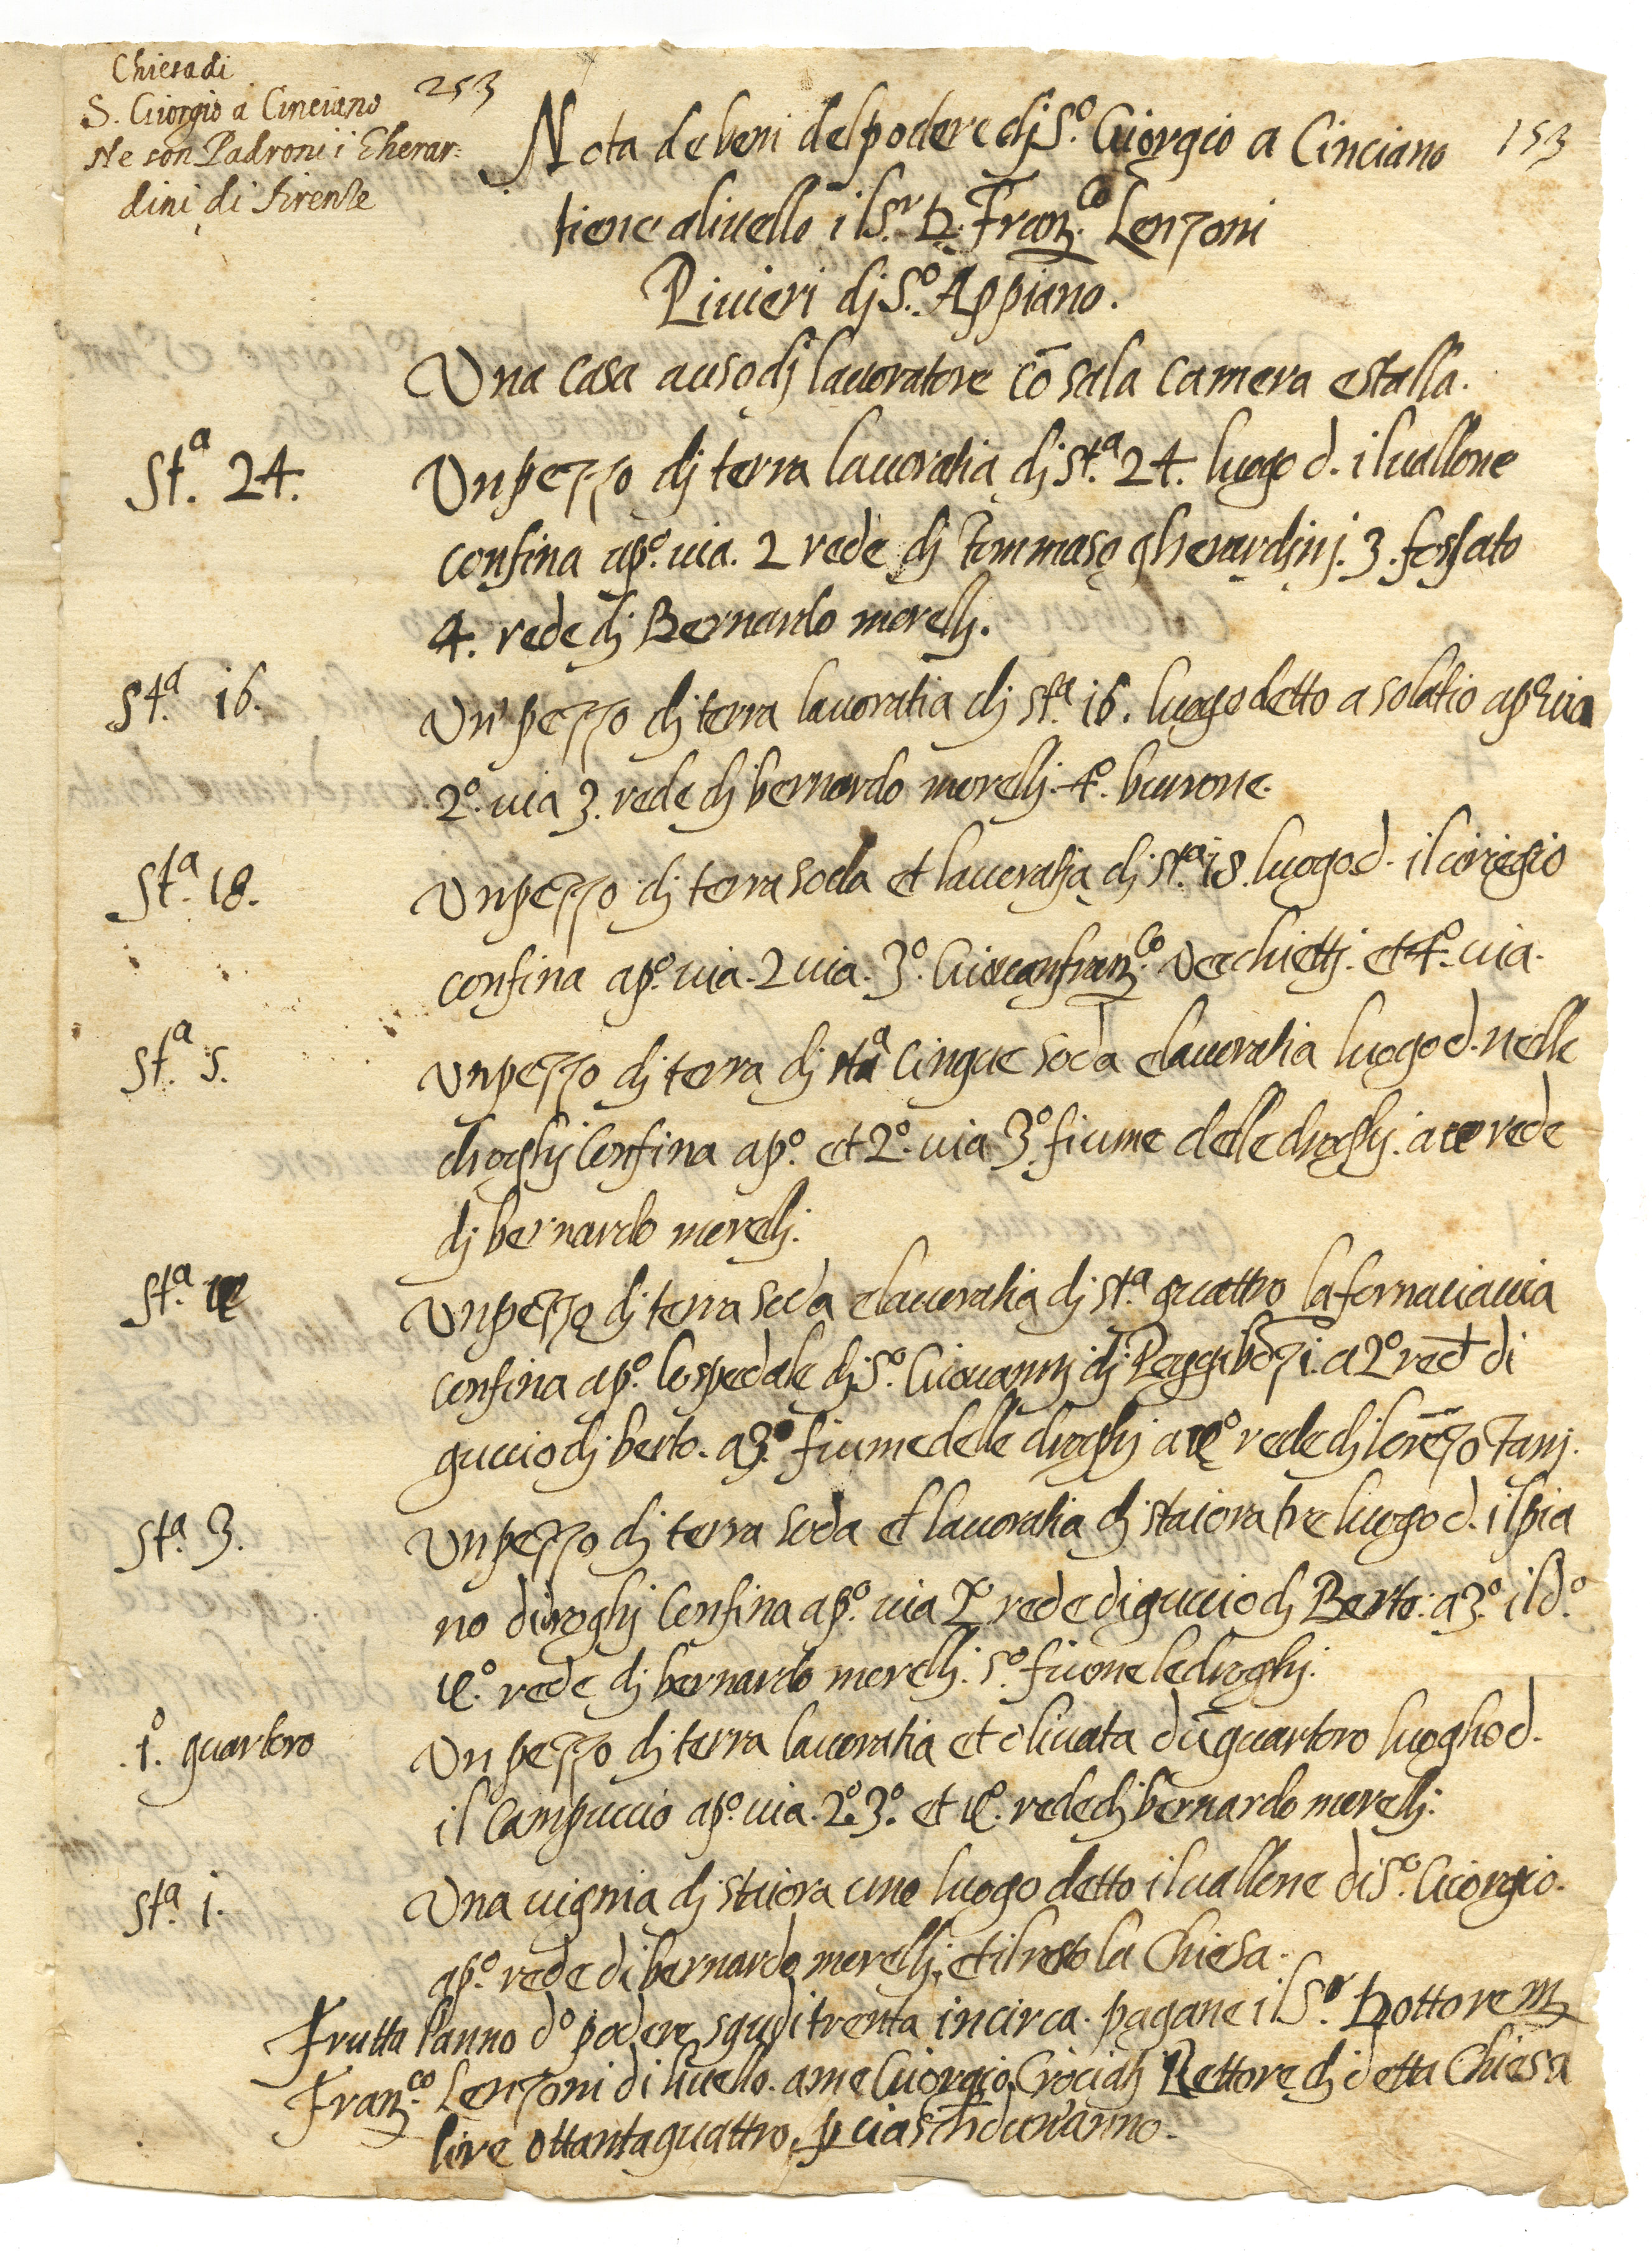 Chiesa di
S. Giorgio a Cinciano 253
Ne son Padroni i Gherar:
dini di firenze
Nota de beni del podere dj S.º Giorgio a Cinciano 153
tiene a liuello il S.r D. Franz.co Lenzoni
Piuieri dj S.º Appiano.
Una casa a uso dj lauoratore cō sala camera e stalla.
St.a 24. Un pezzo dj terra lauoratia dj st.a 24. luogo d. il uallone
confina a pº. uia. 2 rede dj Tommaso gherardinj. 3. fossato
4. rede dj Bernardo morellj.
St.a 16. Un pezzo dj terra lauoratia dj st.a 16. luogo detto a solatio a pº uia
2º. uia 3. rede dj bernardo morellj. 4º. burrone.
St.a 18. Un pezzo dj terra soda et lauoratia dj st.a 18. luogo d. il ciriegio
confina a pº. uia. 2 uia. 3º. Giouanfranz.co Vecchiettj. et 4º. uia.
St.a 5. Un pezzo dj terra dj sta cinque soda e lauoratia luogo d. nelle
droghj Confina a pº. et 2º. uia 3º. fiume delle droghj. a 4º rede
dj bernardo morellj.
St.a 4 Un pezzo dj terra soda e lauoratia dj st.a quattro la fornaciaccia
confina a pº. lo spedale dj S.º Giouannj dj Poggibōzi. a 2º red di
guccio dj berto. a 3º. fiume delle droghj a 4º rede dj lorēzo Tanj.
St.a 3. Un pezzo dj terra soda et lauoratia dj staiora tre luogo d. il pia
no di droghj Confina a pº. uia 2º rede di guccio dj Berto. a 3º. il d.º
4º. rede dj bernardo morellj. 5º. fiume le droghj.
1º. quartoro Un pezzo dj terra lauoratia et oliuata dū quartoro luogho d.
il Campuccio a pº. uia. 2º. 3º. et 4º. rede dj bernardo morellj.
St.a 1. Una uignia dj staiora uno luogo detto il uallone di S.º Giorgio.
a pº. rede di bernardo morellj, et il resto la Chiesa.
Frutta l'anno dº podere scudi trenta in circa. pagane il S.r Dottore m
Franz.co Lenzoni di liuello. a me Giorgio Crociatj Rettore dj detta Chiesa
lire ottantaquattro, p ciaschedun' anno.